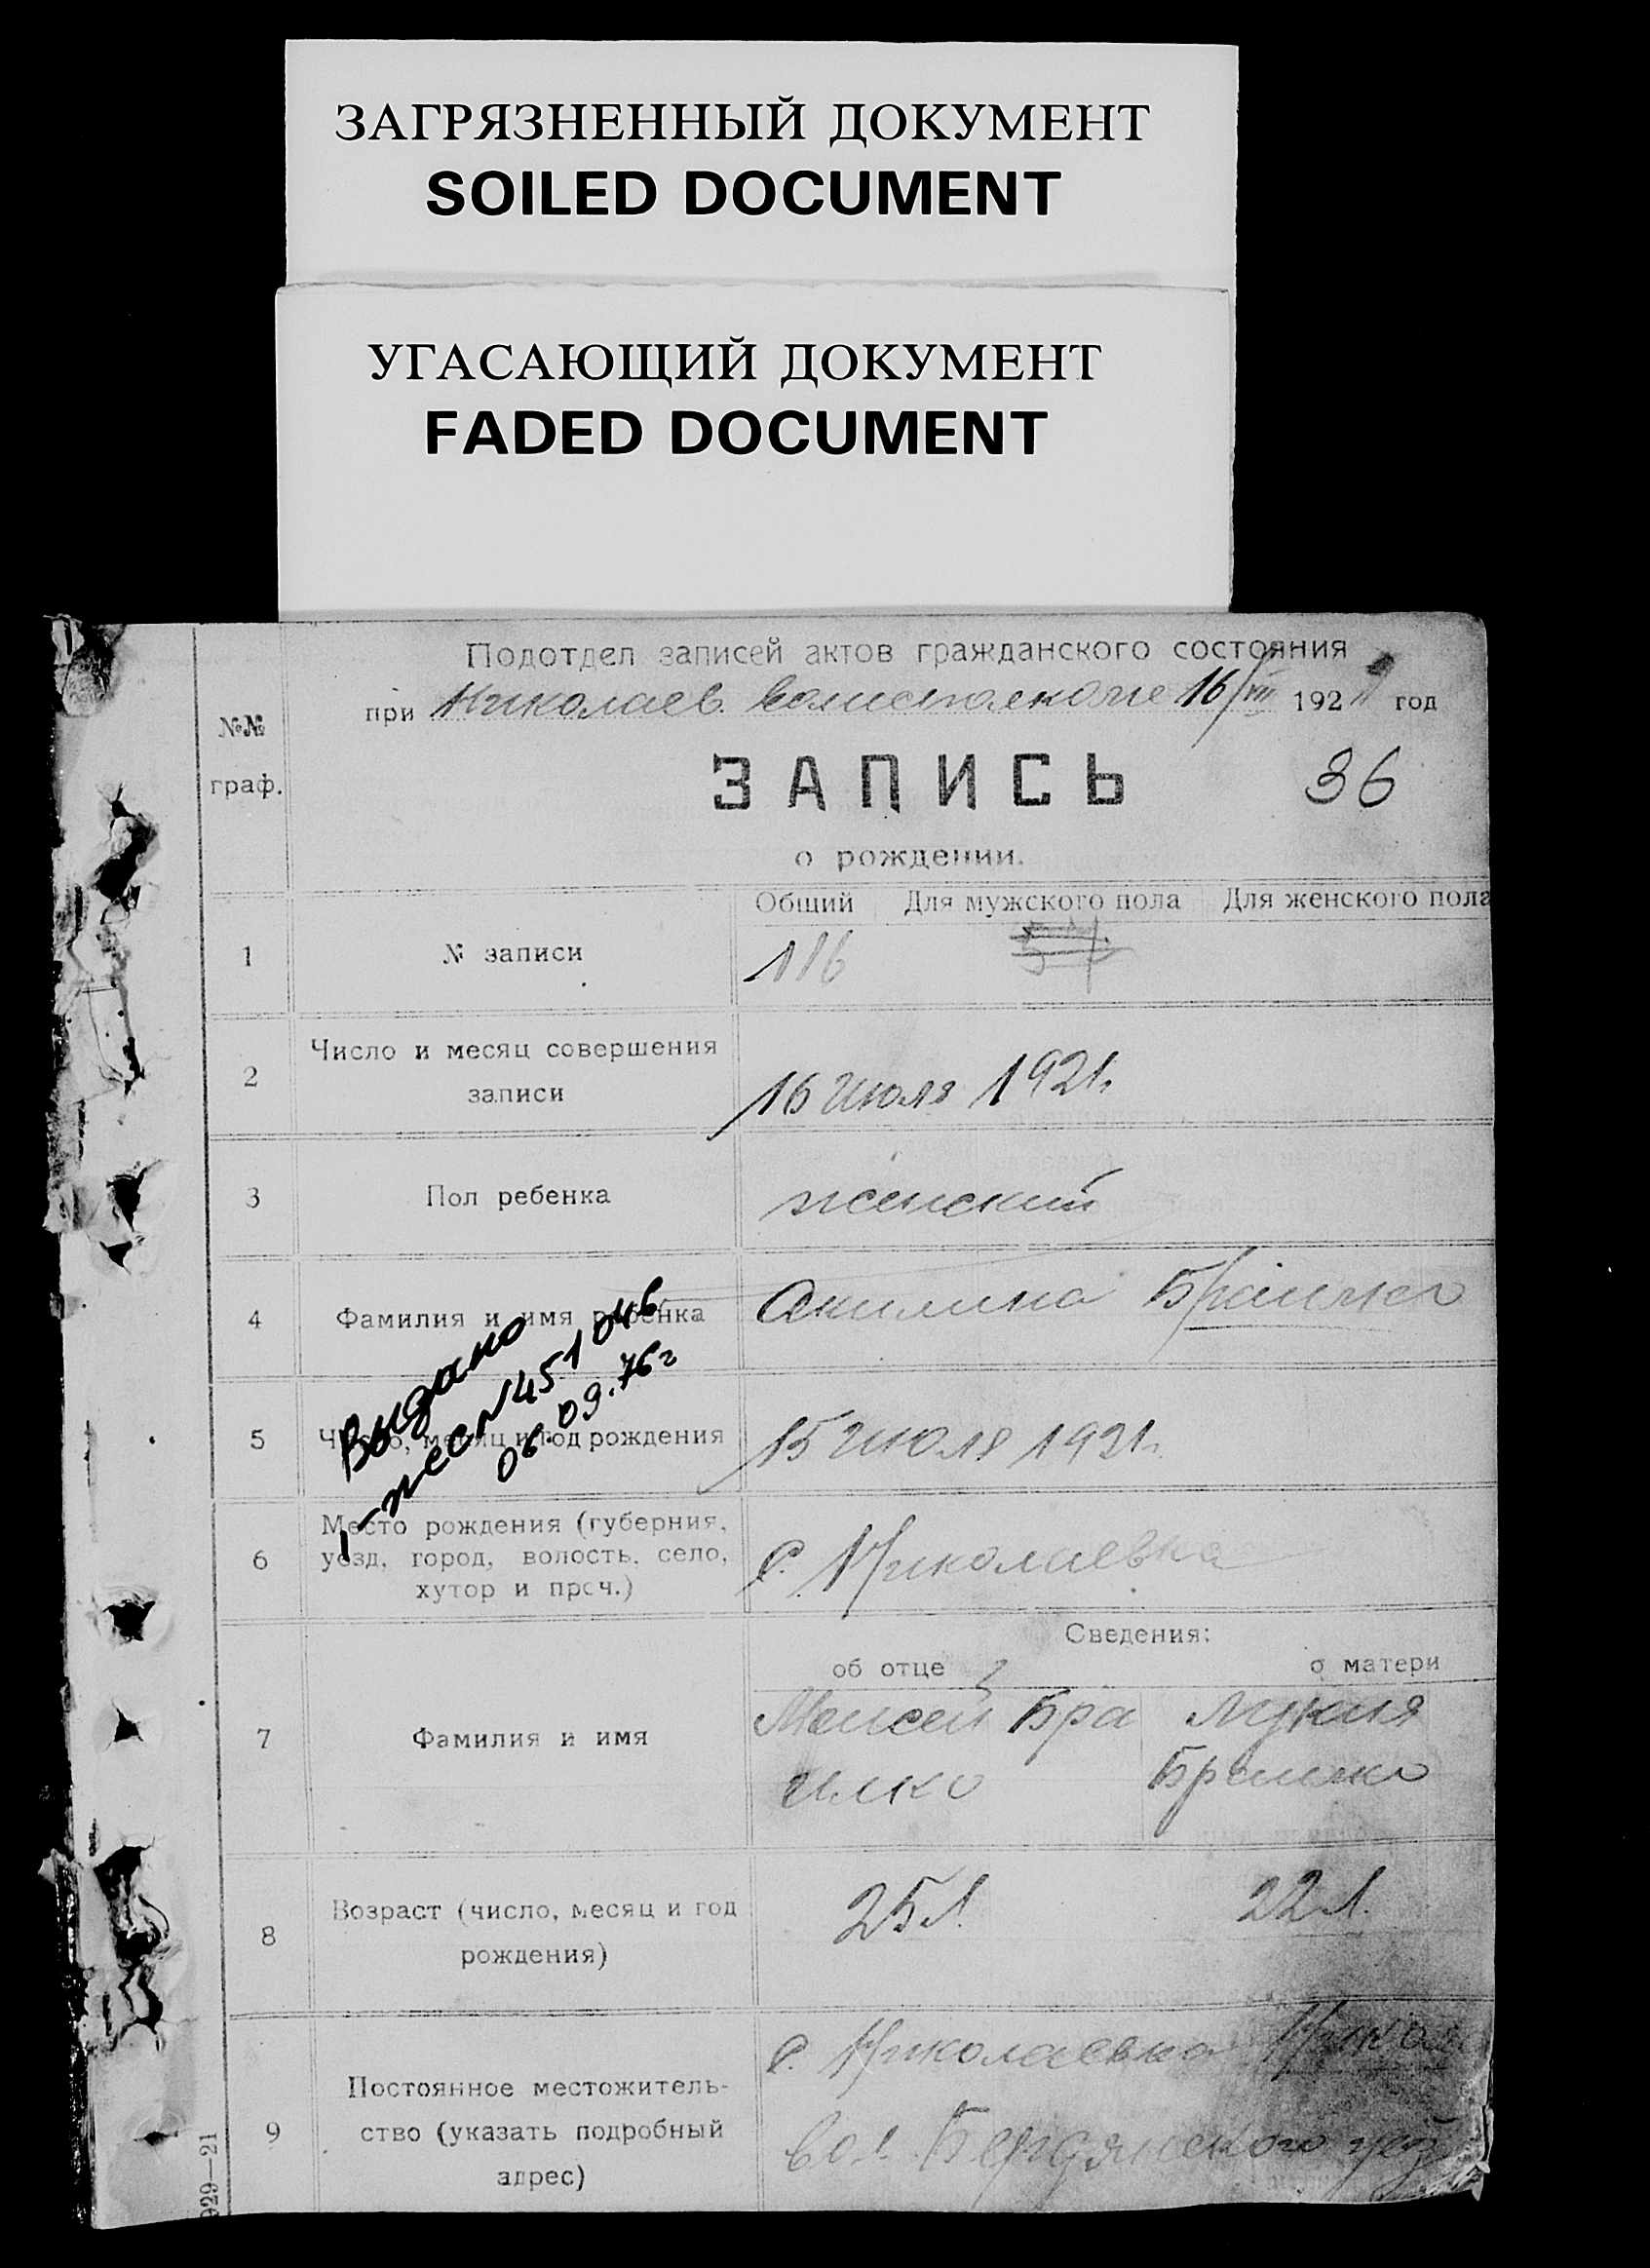 ЗАГРЯЗНЕННЫЙ ДОКУМЕНТ
SOILED DOCUMENT
УГАСАЮЩИЙ ДОКУМЕНТ
FADED DOCUMENT
Подотдел записей актов гражданского состояния
при Николаев. 16/VII 192 год
№№
граф.
ЗАПИСЬ 36
о рождении.
Общий Для мужского пола Для женского пола
1 № записи 116
2 Число и месяц совершения
записи
16 Июля 1921г
3 Пол ребенка женский
4 Фамилия и имя ребенка Акилина
Выдано
N 451046
06.09.76г
5 Число, месяц и год рождения 15 Июля 1921г.
6 Место рождения (губерния,
уезд, город, волость, село,
хутор и проч.)
с. Николаевка
Сведения:
об отце о матери
7 Фамилия и имя
Моисей Бра
8 Возраст (число, месяц и год
рождения)
25 л. 22 л.
9 Постоянное местожитель-
ство (указать подробный
адрес)
с. Николаевка Никол
вол. Бердянского уез
929—21